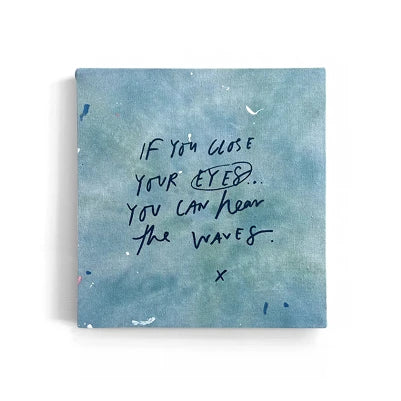 IF YOU CLOSE
YOUR EYES...
YOU CAN hear
the WAVES.
x